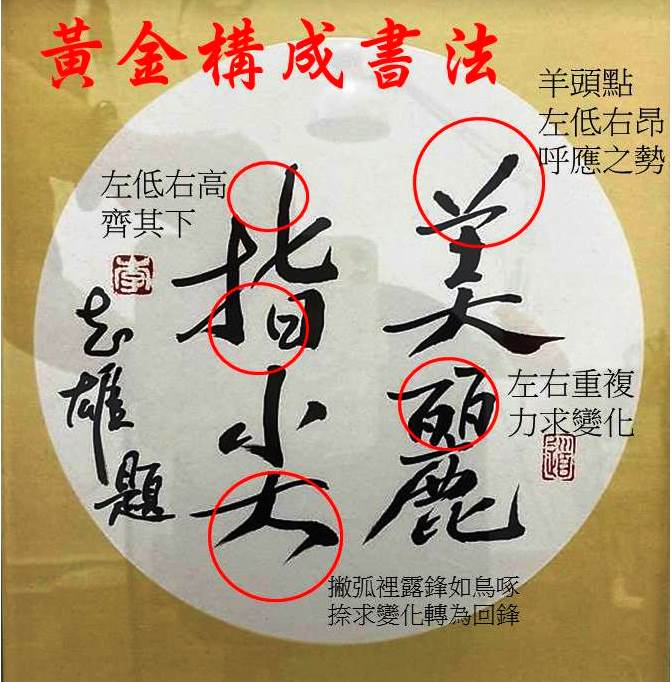 黃金構成書法
羊頭點
左低右昂
呼應之勢
左低右高
齊其下
美麗
指尖
志雄題
左右重複
力求變化
撇弧裡露鋒如鳥啄
捺求變化轉為回鋒